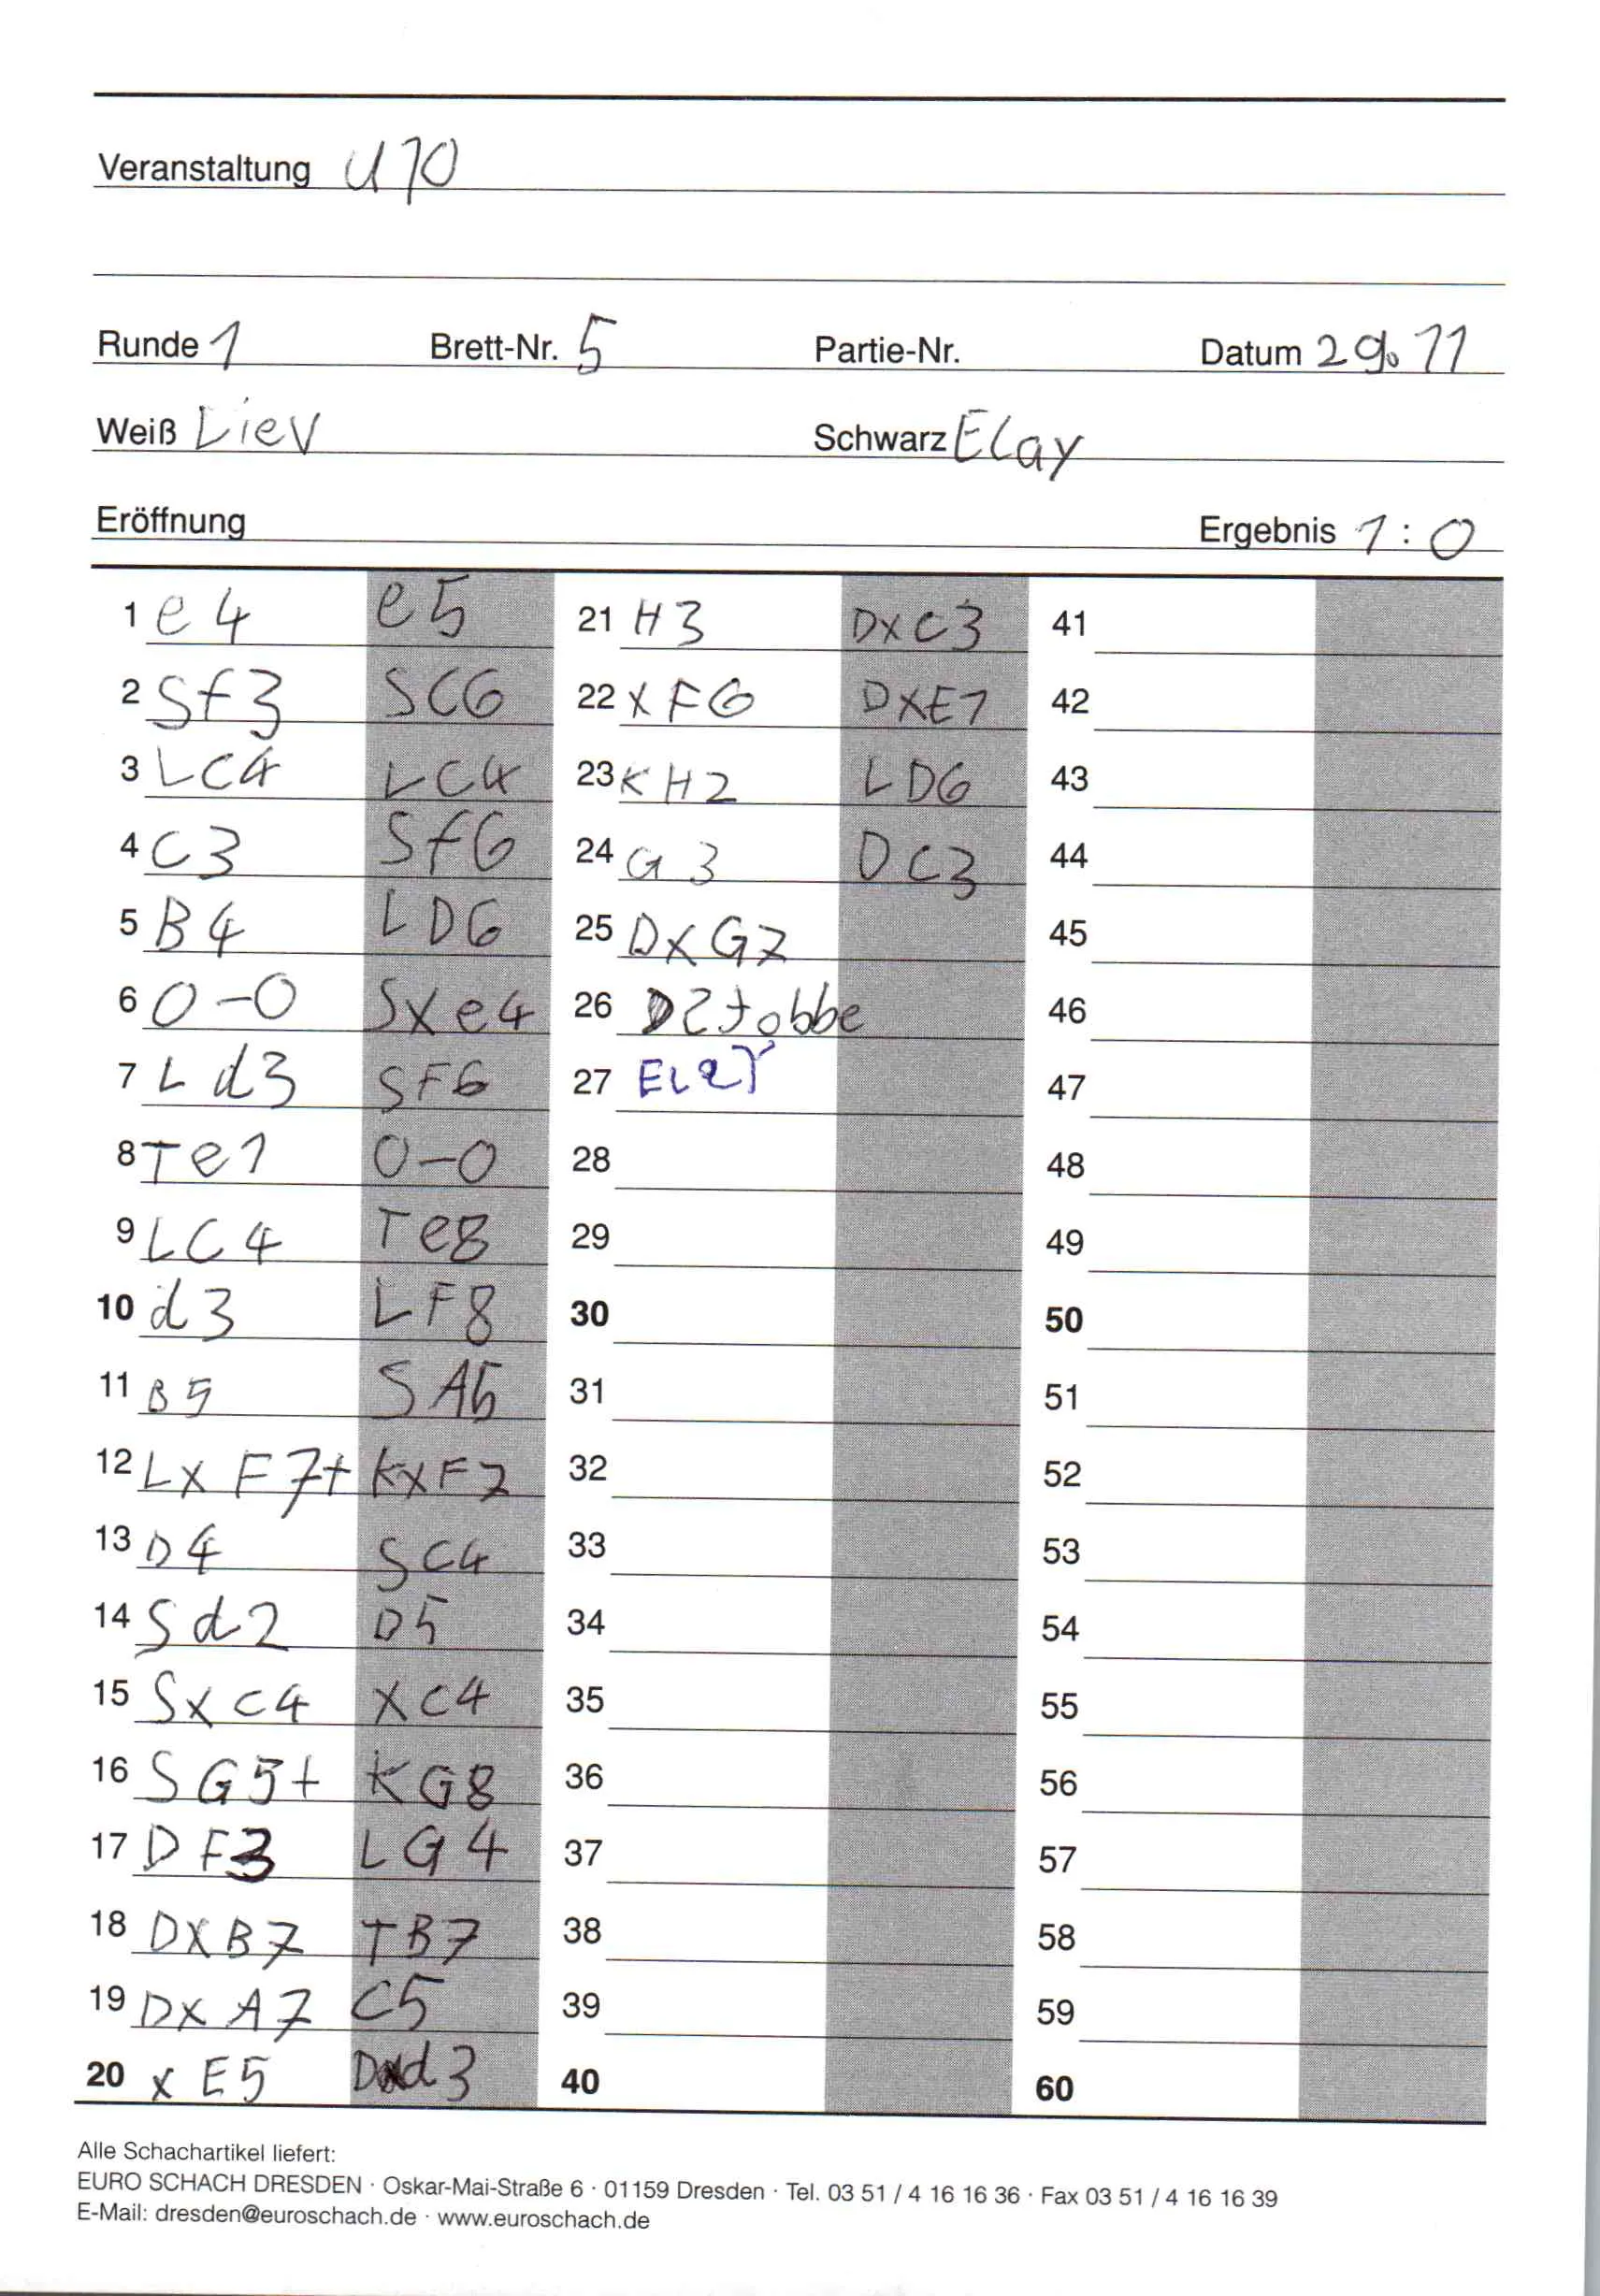 Veranstaltung U10
Runde 1 Brett-Nr. 5 Partie-Nr. Datum 29. 11
Weiß Liev Schwarz Elay
Eröffnung Ergebnis 1 : 0
1 e4 e5 21 H3 DxC3 41
2 Sf3 SC6 22 xF6 DXE1 42
3 LC4 LC4 23 KH2 LD6 43
4 C3 Sf6 24 G3 DC3 44
5 B4 LD6 25 DXG7 45
6 0-0 Sxe4 26 46
7 Ld3 SF6 27 ELAY 47
8 Te1 0-0 28 48
9 LC4 Te8 29 49
10 d3 LF8 30 50
11 B5 SA5 31 51
12 LxF7+ KxF7 32 52
13 D4 SC4 33 53
14 Sd2 D5 34 54
15 Sxc4 XC4 35 55
16 SG5+ KG8 36 56
17 DF3 LG4 37 57
18 DXB7 TB7 38 58
19 DxA7 C5 39 59
20 xE5 Dd3 40 60
Alle Schachartikel liefert:
EURO SCHACH DRESDEN · Oskar-Mai-Straße 6 · 01159 Dresden · Tel. 03 51 / 4 16 16 36 · Fax 03 51 / 4 16 16 39
E-Mail: dresden@euroschach.de · www.euroschach.de